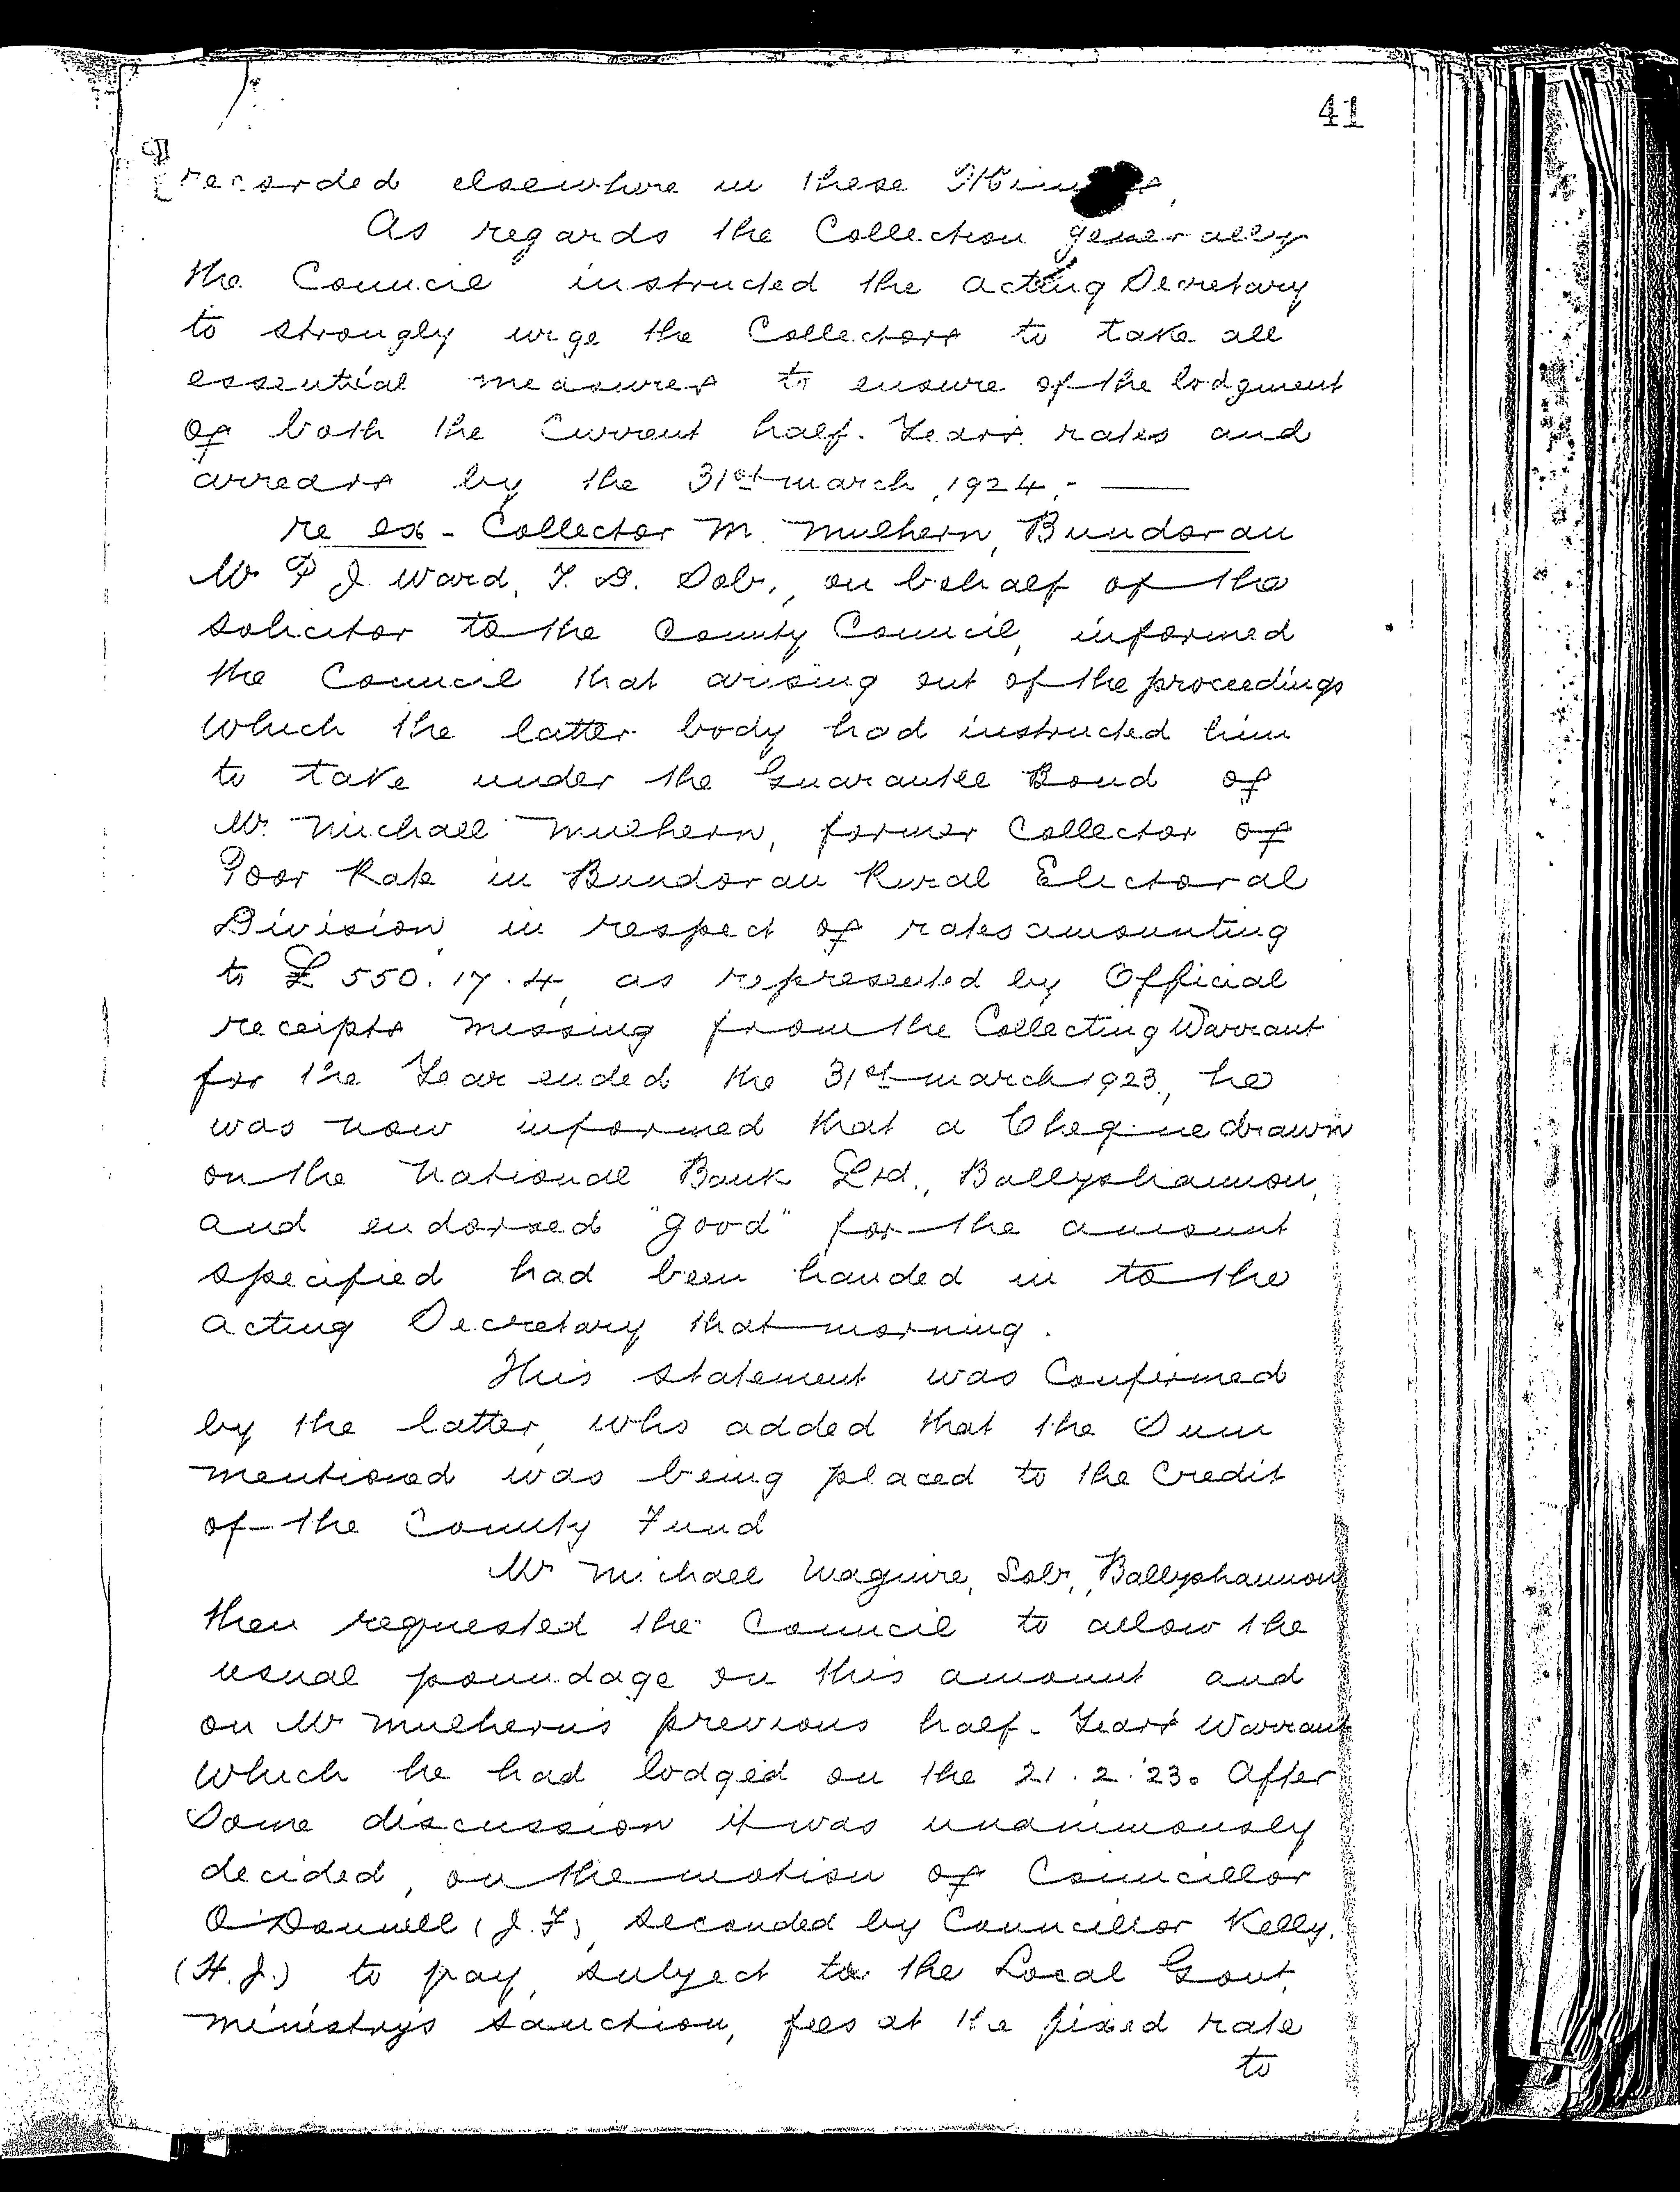 41
recorded elsewhere in these
As regards the Collection generally
the Council instructed the acting Secretary
to strongly urge the Collectors to take all
essential measures to ensure of the lodgment
of both the Current half-Year's rates and
arrears by the 31st march, 1924.-
re ex-Collector M. Mulhern, Bundoran
Mr P J. Ward, T. D. Solr., on behalf of the
solicitor to the County Council, informed
the Council that arising out of the proceedings
which the latter body had instructed him
to take under the Guarantee Bond of
Mr. Michael Mulhern, former Collector of
Poor Rate in Bundoran Rural Electoral
Division, in respect of rates amounting
to £550.17.4, as represented by Official
receipts missing from the Collecting Warrant
for the Year ended the 31st march 1923, he
was now informed that a Cheque drawn
on the National Bank Ltd., Ballyshannon,
and endorsed "good" for the amount
specified had been handed in to the
acting Secretary that morning.
This statement was Confirmed
by the latter, who added that the Sum
mentioned was being placed to the Credit
of the County Fund
Mr Michael Maguire, Solr, Ballyshannon
then requested the Council to allow the
usual poundage on this amount and
on Mr Mulhern's previous half-Year's Warrant
which he had lodged on the 21.2.'23. After
Some discussion it was unanimously
decided, on the motion of Councillor
O'Donnell (J.F), seconded by Councillor Kelly,
(H.J.) to pay, subject to the Local Govt.
ministry's sanction, fees at the fixed rate
to